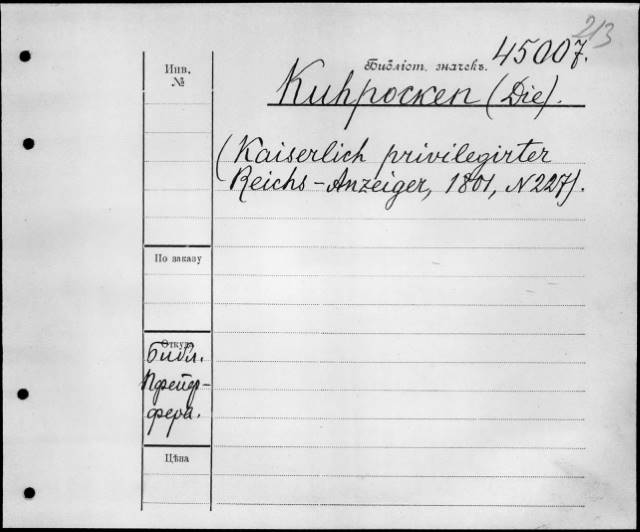 213
45007.
Инв.
№
Библіот. значекъ.
Kuhpocken (Die).
(Kaiserlich privilegirter
Reichs-Anzeiger, 1801, N 227).
По заказу
Откуда
Библ.
Пфейф-
фера.
Цѣна